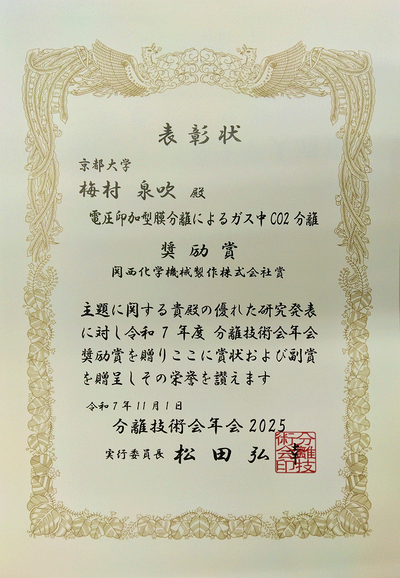 表彰状
京都大学
梅村 泉吹 殿
電圧印加型膜分離によるガス中CO2分離
奨励賞
関西化学機械製作株式会社賞
主題に関する貴殿の優れた研究発表
に対し令和7年度 分離技術会年会
奨励賞を贈りここに賞状および副賞
を贈呈しその栄誉を讃えます
令和7年11月1日
分離技術会年会2025
実行委員長 松田 弘幸
分離技
術会印